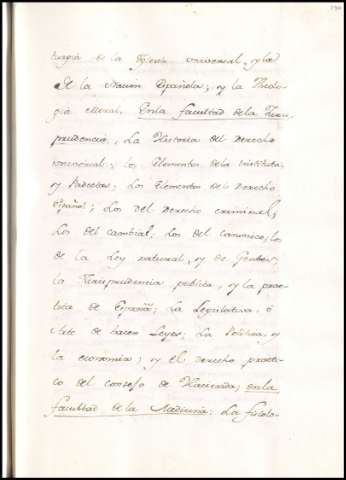 turgia de la Yglesia universal, y la
de la Nacion Española; y la Theolo-
gia Moral. En la facultad de la Juris-
prudencia, La Historia del Derecho
universal; los Elementos de la Instituta,
y Pandectas; Los Elementos del Derecho
Español; Los del Derecho criminal;
Los del cambial; los del canonico; los
de la Ley natural, y de Gentes;
la Jurisprudencia publica, y la prac-
tica de España; La Legislativa, ó
Arte de hacer Leyes; La Politica, y
la economia; y el derecho practi-
co del consejo de Hacienda; en la
facultad de la Medicina: La fisiolo-